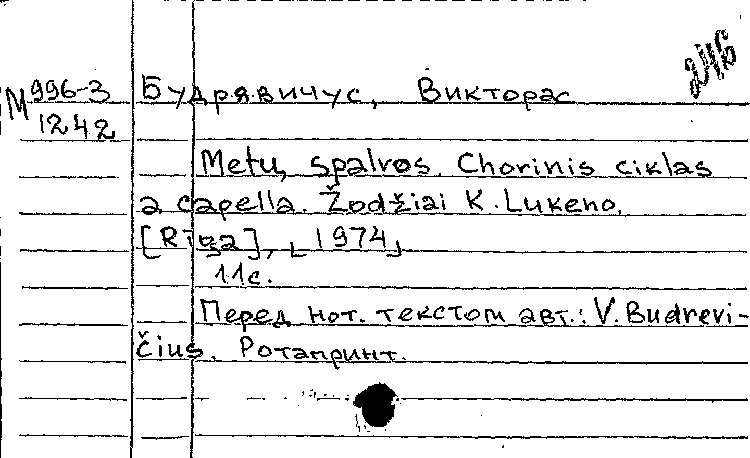 246
М 996-3
1242
Будрявичус, Викторас
Metų spalvos. Chorinis ciklas
a capella. Žodžiai K. Lukėno.
[Rīga], [1974]
11 с.
Перед нот. текстом авт.: V. Budrevi-
čius. Ротапринт.